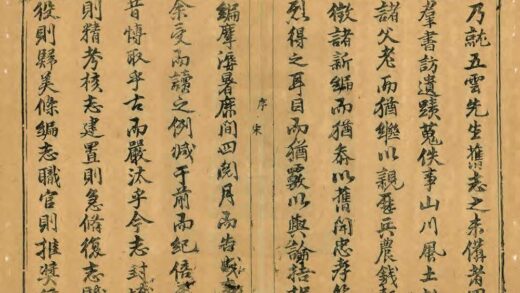 乃就五雲先生舊志之未備者
羣書訪遺蹟蒐佚事山川風土
諸父老而猶繼以親歷兵農錢
徵諸新編而猶叅以舊聞忠孝節
烈得之耳目而猶覈以輿論拮据
序 宋
編摩溽暑席間四閱月而告成
余受而讀之例減于前而紀倍
昔博取乎古而嚴汰乎今志封
則精考核志建置則急脩復志
役則歸美條編志職官則推奬